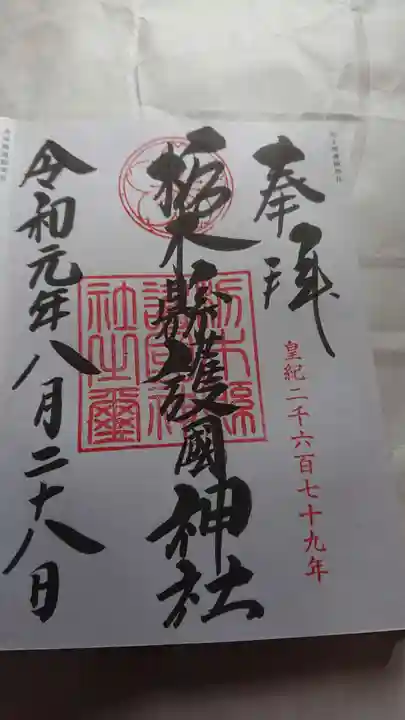 奉拝
皇紀二千六百七十九年
栃木縣護國神社
栃木縣護國神社之璽
令和元年八月二十八日